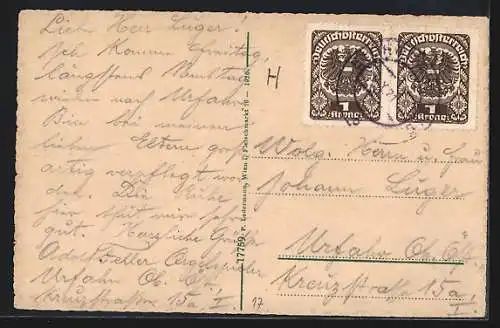 Liebe Herr Luger!
Ich komme Dienstag,
längstens Samstag
wieder nach Urfahr.
Bin bei meinen
lieben Eltern groß-
artig verpflegt wor-
den. Die Ruhe
hier tut mir sehr
gut. Herzliche Grüße
Urfahr Ob. Öst.
Kreuzstrasse 15a/I
17759 P. Ledermann, Wien I, Fleischmarkt 10 - 1920
H
17
Deutschösterreich
1
Krone
Deutschösterreich
1
Krone
Wolg. Herrn u. Frau
Johann Luger
Urfahr Ob. Öst.
Kreuzstraße 15a/I